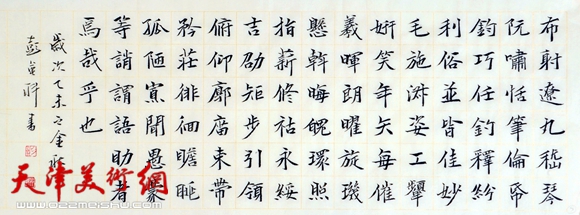 布射遼丸嵇琴
阮嘯恬筆倫帋
鈞巧任釣釋紛
利俗並皆佳妙
毛施淑姿工顰
妍笑年矢每催
羲暉朗曜旋璣
懸斡晦魄環照
指薪修祜永綏
吉劭矩步引領
俯仰廊廟束帶
矜莊徘徊瞻眺
孤陋寡聞愚蒙
等誚謂語助者
焉哉乎也
歲次乙未之金秋
彭英科書
天津美術網
www.022meishu.com